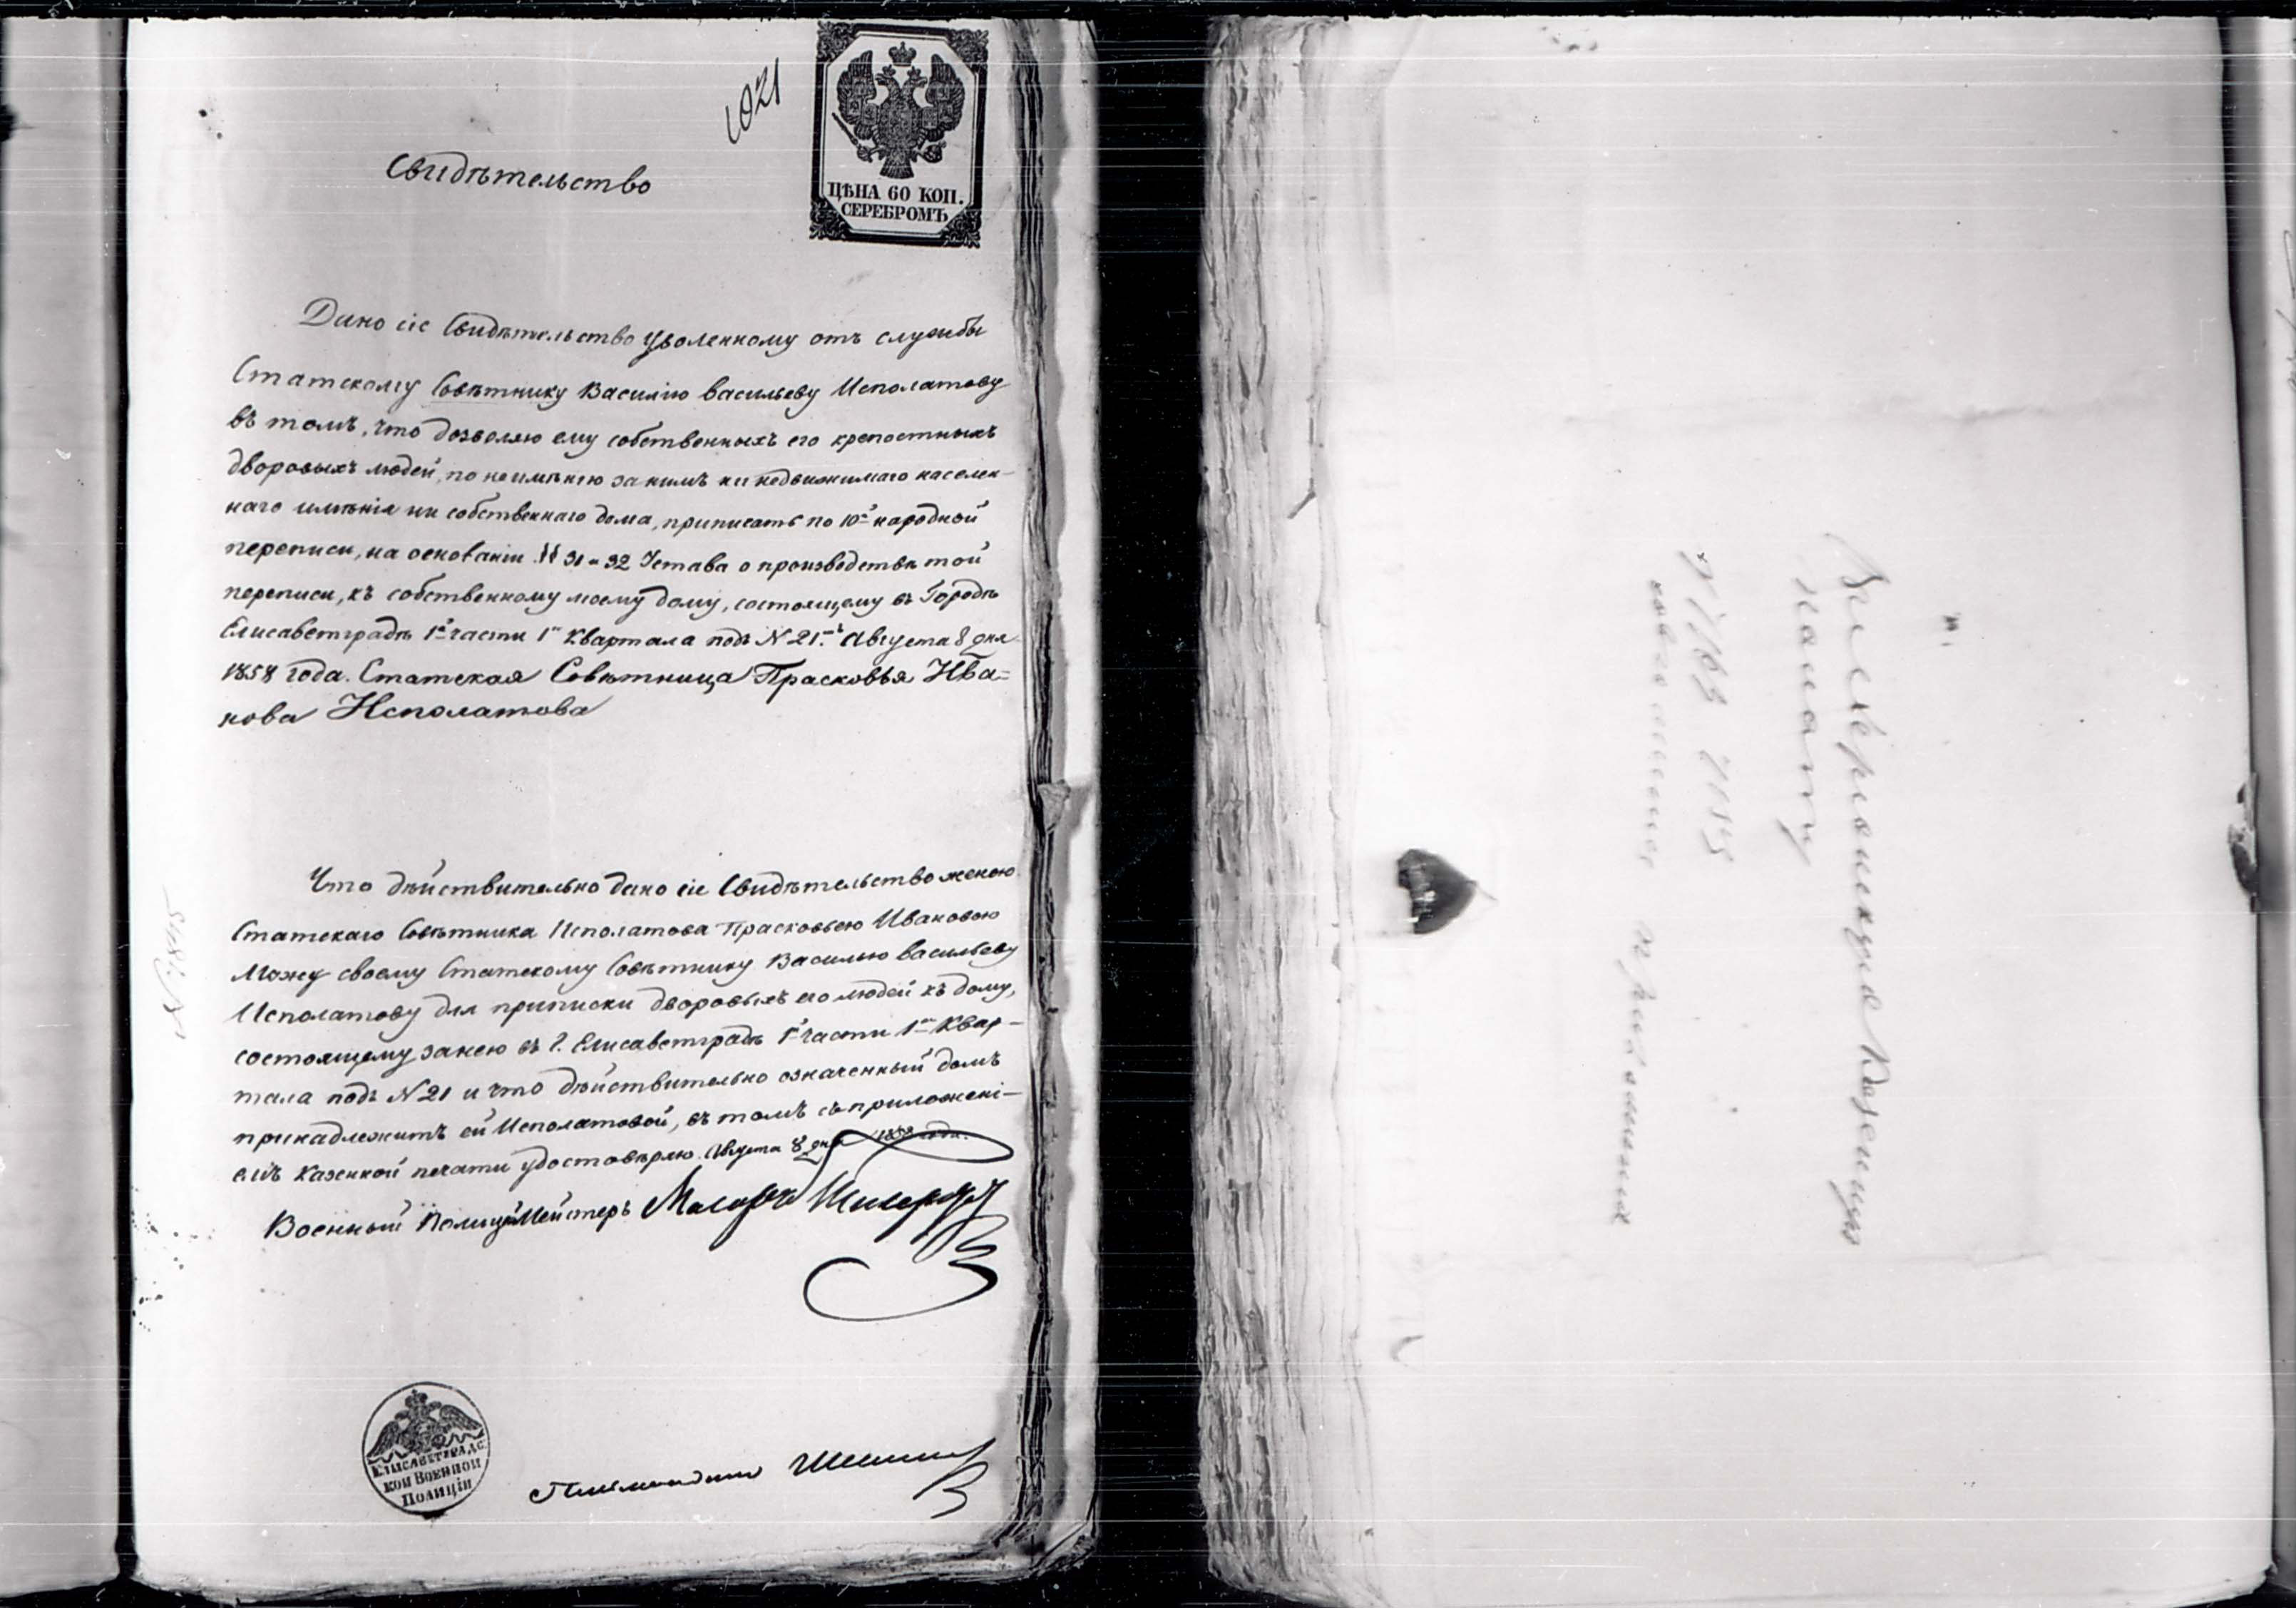 1021
ЦѢНА 60 КОП.
СЕРЕБРОМЪ
Свидѣтельство
Дано сіе Свидѣтельство уволенному отъ службы
Статскому Совѣтнику Василію Васильеву Исполатову
въ томъ, что дозволяю ему собственныхъ его крепостныхъ
дворовыхъ людей, по неимѣнію за нимъ ни недвижимаго населен-
наго имѣнія ни собственнаго дома, приписать по 10й народной
переписи, на основаніи §§ 31 и 32 Устава о производствѣ той
переписи, къ собственному моему дому, состоящему въ Городѣ
Елисаветградѣ 1й части 1го Квартала подъ N 21мъ Августа 8 дня
1858 года. Статская Совѣтница Прасковья Ива=
нова Исполатова
Что дѣйствительно дано сіе Свидѣтельство женою
Статскаго Совѣтника Исполатова Прасковьею Ивановою
Мужу своему Статскому Совѣтнику Василью Васильеву
Исполатову для приписки дворовыхъ его людей къ дому,
состоящему за нею въ Г. Елисаветградѣ 1й части 1го Квар-
тала подъ N 21 и что дѣйствительно означенный домъ
принадлежитъ ей Исполатовой, въ томъ съ приложені-
емъ казенной печати удостовѣряю. Августа 8 дня 1858 года.
Военный Полицiймейстеръ Маіоръ
ЕЛИСАВЕТГРАДС
КОЙ ВОЕННОЙ
ПОЛИЦІИ
Письмоводитель
Казенную
палату